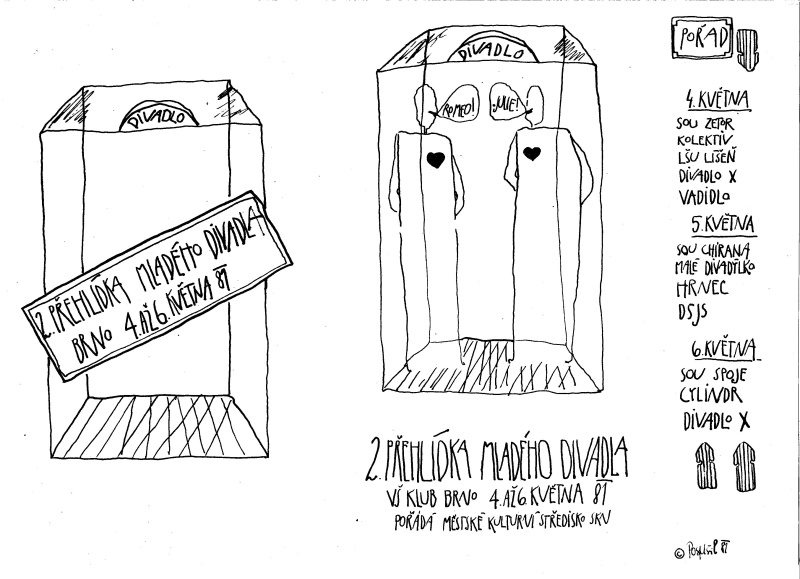 DIVADLO
2. PŘEHLÍDKA MLADÉHO DIVADLA
BRNO 4. AŽ 6. KVĚTNA 81
DIVADLO
ROMEO!
JULIE!
2. PŘEHLÍDKA MLADÉHO DIVADLA
VŠ KLUB BRNO 4. AŽ 6. KVĚTNA 81
POŘÁDÁ MĚSTSKÉ KULTURNÍ STŘEDISKO SKN
POŘAD
4. KVĚTNA
SOU ZETOR
KOLEKTIV
LŠU LÍŠEŇ
DIVADLO X
VADIDLO
5. KVĚTNA
SOU CHIRANA
MALÉ DIVADÝLKO
HRNEC
DSJS
6. KVĚTNA
SOU SPOJE
CYLINDR
DIVADLO X
© Pospíšil 81